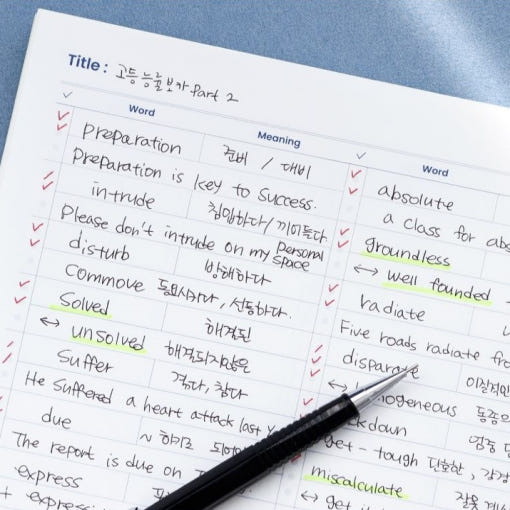 Title : 고등 능률보카 part 2
Word Meaning
preparation 준비 / 대비
Preparation is key to success.
intrude 침입하다 / 끼어들다
Please don't intrude on my personal space
disturb 방해하다
Commove 동요시키다, 선동하다.
Solved 해결된
↔ unsolved 해결되지않은
Suffer 겪다, 참다
He suffered a heart attack last
due
The report is due on
express
Word
absolute
a class for
groundless
↔ well founded
radiate
Five roads radiate
disparate 이질적인
get - tough 단호한,
miscalculate
↔